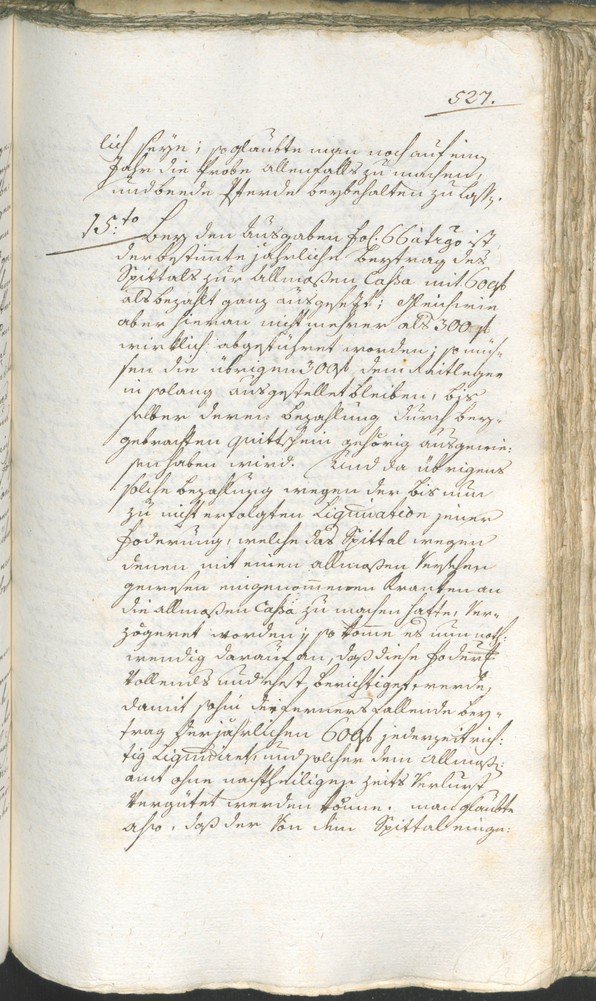 527.
lich seye; so glaubte man noch auf ein
Jahr die Probe allenfalls zu machen,
und beede Pferde beybehalten zu lass.
15.to Bey den Ausgaben fol: 66 à tergo ist
der bestimte jährliche beytrag des
Spittals zur Allmosen Cassa mit 600 f
als bezahlt ganz ausgesezt; Gleichwie
aber hieran nicht mehrer als 300 f
wirklich abgeführet worden; so müs-
sen die übrigen 300 f dem Raitleger
in solang ausgestellet bleiben, bis
selber deren bezahlung durch bey-
gebrachten quittschein gehörig ausgewie:
sen haben wird. Und da übrigens
solche bezahlung wegen der bis nun
zu nicht erfolgten Liquidation jener
foderung, welche das Spittal wegen
denen mit einen allmosen Versehen
gewesen eingenommenen Kranken an
die allmosen Cassa zu machen hatte, Ver-
zögeret worden; so komme es nun noth-
wendig darauf an, daß diese foderung
Vollends und ehest berichtiget werde,
damit sohin die ferners fallende bey-
trag der jährlichen 600 f jederzeit rich:
tig Liquidiret, und solcher dem Allmoß:
amt ohne nachtheiligen zeits Verlurst
Vergütet werden könne. man glaubte
also, daß der Von dem Spittal einge: